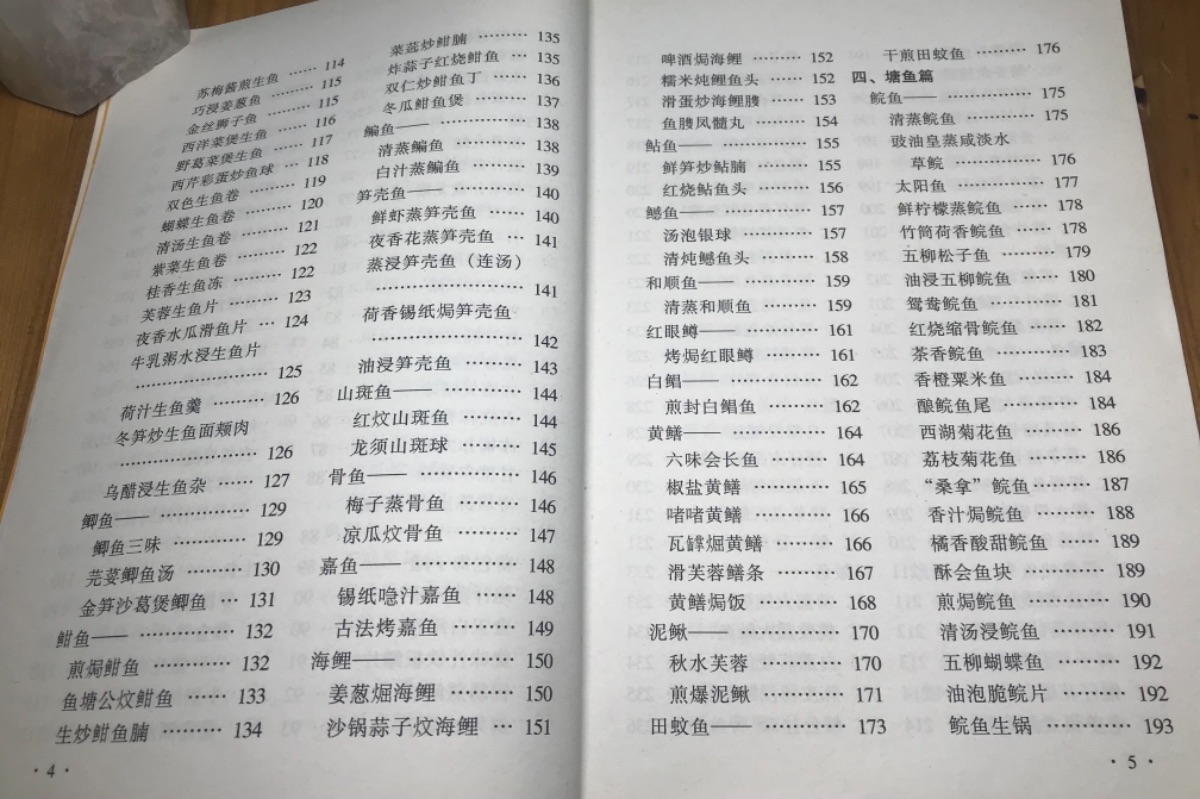 苏梅酱煎生鱼 …… 114
巧浸姜葱鱼 …… 115
金丝狮子鱼 ……… 115
西洋菜煲生鱼 …… 116
野葛菜煲生鱼 …… 117
西芹彩蛋炒鱼球 … 118
双色生鱼卷 ……… 119
蝴蝶生鱼卷 ……… 120
清汤生鱼卷 ……… 121
紫菜生鱼卷 ……… 122
桂香生鱼冻 ……… 122
芙蓉生鱼片 ……… 123
夜香水瓜滑鱼片 … 124
牛乳粥水浸生鱼片
…………………… 125
荷汁生鱼羹 ……… 126
冬笋炒生鱼面颊肉
…………………… 126
乌醋浸生鱼杂 …… 127
鲫鱼—— ………… 129
鲫鱼三味 ………… 129
芫荽鲫鱼汤 ……… 130
金笋沙葛煲鲫鱼 … 131
鲇鱼—— ………… 132
煎焗鲇鱼 ………… 132
鱼塘公炆鲇鱼 …… 133
生炒鲇鱼腩 ……… 134
· 4 ·
菜蕊炒鲇腩 ……… 135
炸蒜子红烧鲇鱼 … 135
双仁炒鲇鱼丁 …… 136
冬瓜鲇鱼煲 ……… 137
鳊鱼—— ………… 138
清蒸鳊鱼 ………… 138
白汁蒸鳊鱼 ……… 139
笋壳鱼—— ……… 140
鲜虾蒸笋壳鱼 …… 140
夜香花蒸笋壳鱼 … 141
蒸浸笋壳鱼（连汤）
…………………… 141
荷香锡纸焗笋壳鱼
…………………… 142
油浸笋壳鱼 ……… 143
山斑鱼—— ……… 144
红炆山斑鱼 ……… 144
龙须山斑球 ……… 145
骨鱼—— ………… 146
梅子蒸骨鱼 ……… 146
凉瓜炆骨鱼 ……… 147
嘉鱼—— ………… 148
锡纸隐汁嘉鱼 …… 148
古法烤嘉鱼 ……… 149
海鲤—— ………… 150
姜葱焗海鲤 ……… 150
沙锅蒜子炆海鲤 … 151
啤酒焗海鲤 ……… 152
糯米炖鲤鱼头 …… 152
滑蛋炒海鲤膄 …… 153
鱼膄凤髓丸 ……… 154
鲇鱼—— ………… 155
鲜笋炒鲇腩 ……… 155
红烧鲇鱼头 ……… 156
鳡鱼—— ………… 157
汤泡银球 ………… 157
清炖鳡鱼头 ……… 158
和顺鱼—— ……… 159
清蒸和顺鱼 ……… 159
红眼鳟—— ……… 161
烤焗红眼鳟 ……… 161
白鲳—— ………… 162
煎封白鲳鱼 ……… 162
黄鳝—— ………… 164
六味会长鱼 ……… 164
椒盐黄鳝 ………… 165
啫啫黄鳝 ………… 166
瓦罉焗黄鳝 ……… 166
滑芙蓉鳝条 ……… 167
黄鳝焗饭 ………… 168
泥鳅—— ………… 170
秋水芙蓉 ………… 170
煎爆泥鳅 ………… 171
田蚊鱼—— ……… 173
干煎田蚊鱼 ……… 176
四、塘鱼篇
鲩鱼—— ………… 175
清蒸鲩鱼 ………… 175
豉油皇蒸咸淡水
草鲩 ……………… 176
太阳鱼 …………… 177
鲜柠檬蒸鲩鱼 …… 178
竹筒荷香鲩鱼 …… 178
五柳松子鱼 ……… 179
油浸五柳鲩鱼 …… 180
鸳鸯鲩鱼 ………… 181
红烧缩骨鲩鱼 …… 182
茶香鲩鱼 ………… 183
香橙粟米鱼 ……… 184
酿鲩鱼尾 ………… 184
西湖菊花鱼 ……… 186
荔枝菊花鱼 ……… 186
“桑拿”鲩鱼 ……… 187
香汁焗鲩鱼 ……… 188
橘香酸甜鲩鱼 …… 189
酥会鱼块 ………… 189
煎焗鲩鱼 ………… 190
清汤浸鲩鱼 ……… 191
五柳蝴蝶鱼 ……… 192
油泡脆鲩片 ……… 192
鲩鱼生锅 ………… 193
· 5 ·